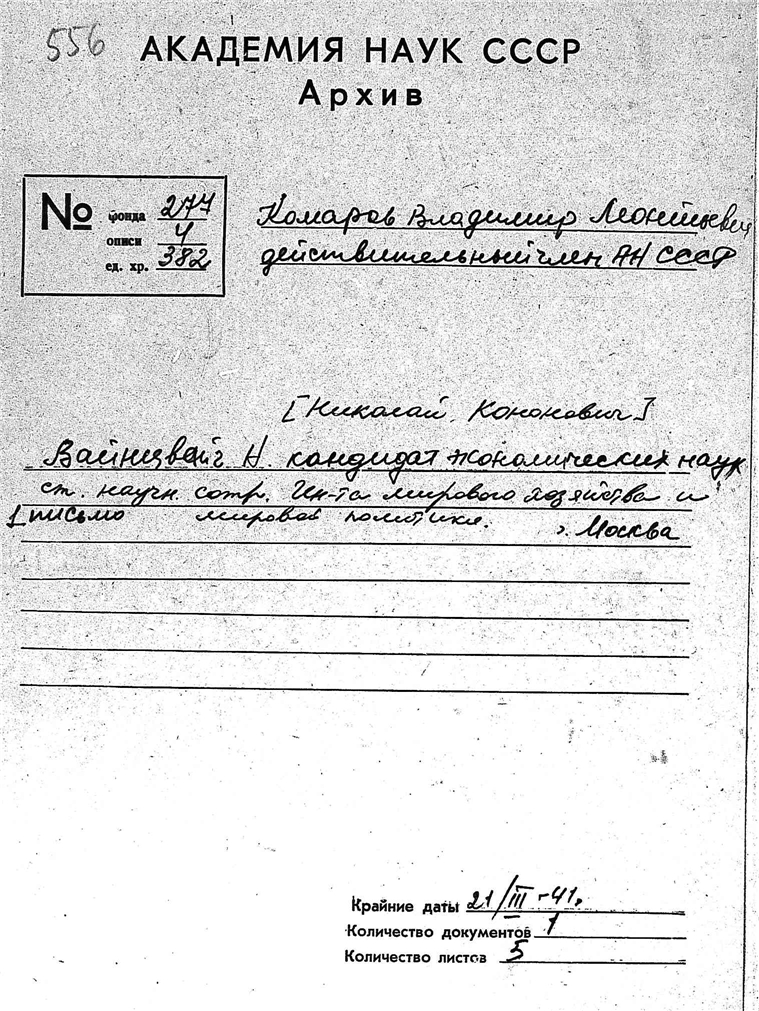 556
АКАДЕМИЯ НАУК СССР
Архив
№ фонда 277
описи 4
ед. хр. 382
Комаров Владимир Леонтьевич
действительный член АН СССР
[Николай Кононович]
Вайнцвайг Н. кандидат экономических наук
ст. научн. сотр. Ин-та мирового хозяйства и
1 письмо мировой политики. г. Москва
Крайние даты 21/III-41.
Количество документов 1
Количество листов 5